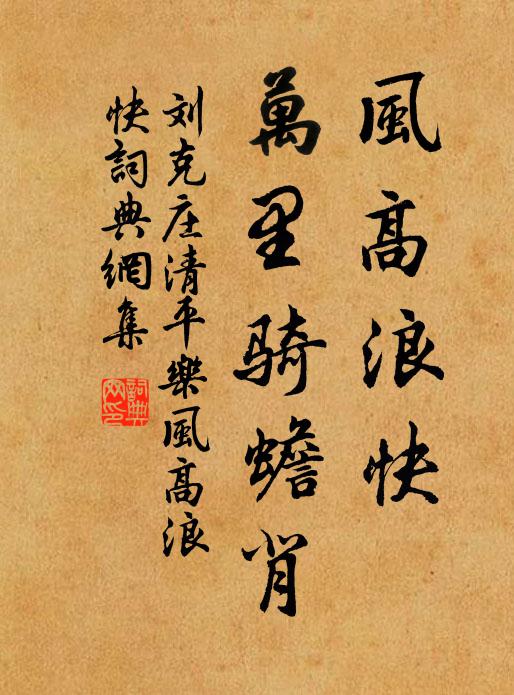 風高浪快
萬里骑蟾背
刘克庄清平樂風高浪
快詞典網集